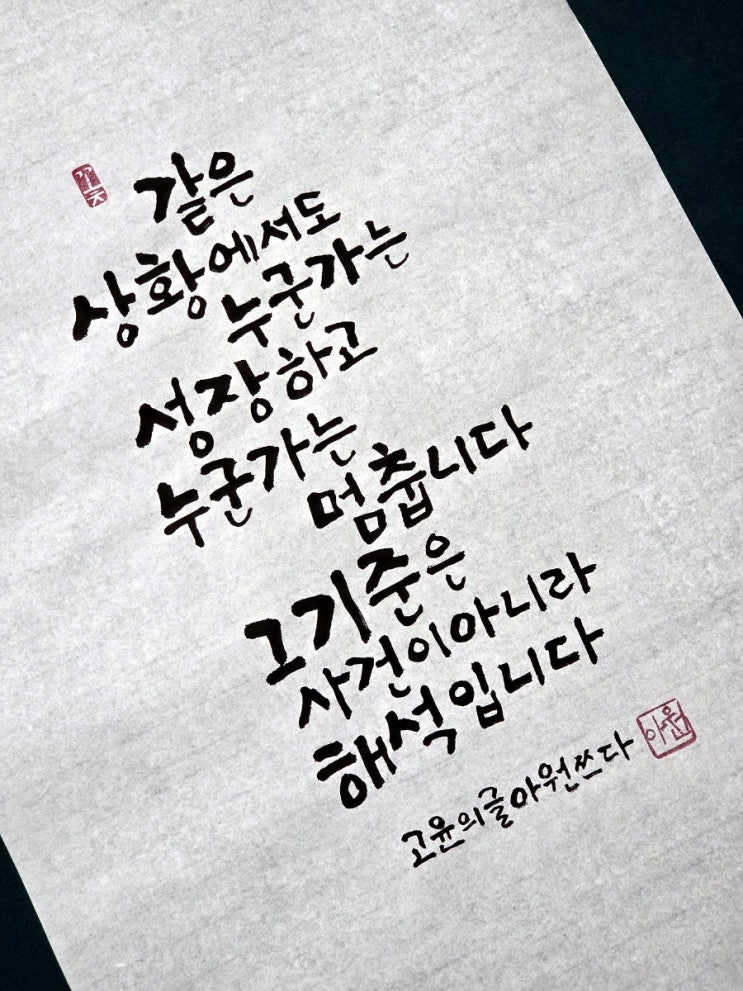 같은
상황에서도
누군가는
성장하고
누군가는
멈춥니다
그기준은
사건이아니라
해석입니다
고윤의글아원쓰다
아원